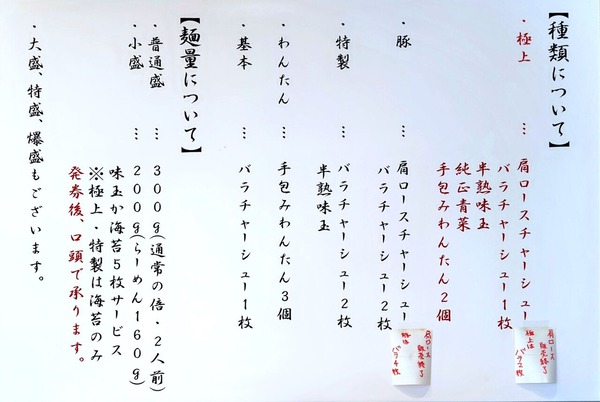 【種類について】
・極上 … 肩ロースチャーシュー
肩ロース
販売終了
極上は
バラ2枚
バラチャーシュー1枚
半熟味玉
純正青菜
手包みわんたん2個
・豚 … 肩ロースチャーシュー
肩ロース
販売終了
豚は
バラ4枚
バラチャーシュー2枚
・特製 … バラチャーシュー2枚
半熟味玉
・わんたん … 手包みわんたん3個
・基本 … バラチャーシュー1枚
【麺量について】
・普通盛 … 300g(通常の倍・2人前)
・小盛 … 200g(らーめん160g)
味玉か海苔5枚サービス
※極上・特製は海苔のみ
発券後、口頭で承ります。
・大盛、特盛、爆盛もございます。